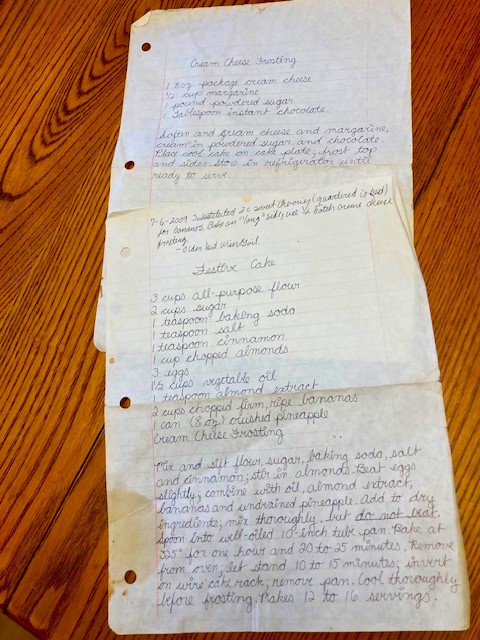 Cream Cheese Frosting
1 8 oz package cream cheese
1/2 cup margarine
1 pound powdered sugar
1 Tablespoon instant chocolate.
Soften and cream cheese and margarine,
cream in powdered sugar and chocolate.
Place cool cake on cake plate; frost top
and sides. Store in refrigerator until
ready to serve.
7-6-2009 Substituted 2 c sweet cherries (quartered
for bananas. use 1/2 batch cream cheese
frosting.
Festive Cake
3 cups all-purpose flour
2 cups sugar
1 teaspoon baking soda
1 teaspoon salt
1 teaspoon cinnamon
1 cup chopped almonds
3 eggs
1 1/2 cups vegetable oil
1 teaspoon almond extract
2 cups chopped firm, ripe bananas
1 can (8 oz) crushed pineapple
Cream Cheese Frosting
Mix and sift flour, sugar, baking soda, salt
and cinnamon; stir in almonds. Beat eggs
slightly; combine with oil, almond extract,
bananas and undrained pineapple. Add to dry
ingredients; mix thoroughly, but do not beat.
Spoon into well-oiled 10-inch tube pan. Bake at
325° for one hour and 20 to 25 minutes. Remove
from oven; let stand 10 to 15 minutes; invert
on wire cake rack; remove pan. Cool thoroughly
before frosting. Makes 12 to 16 servings.